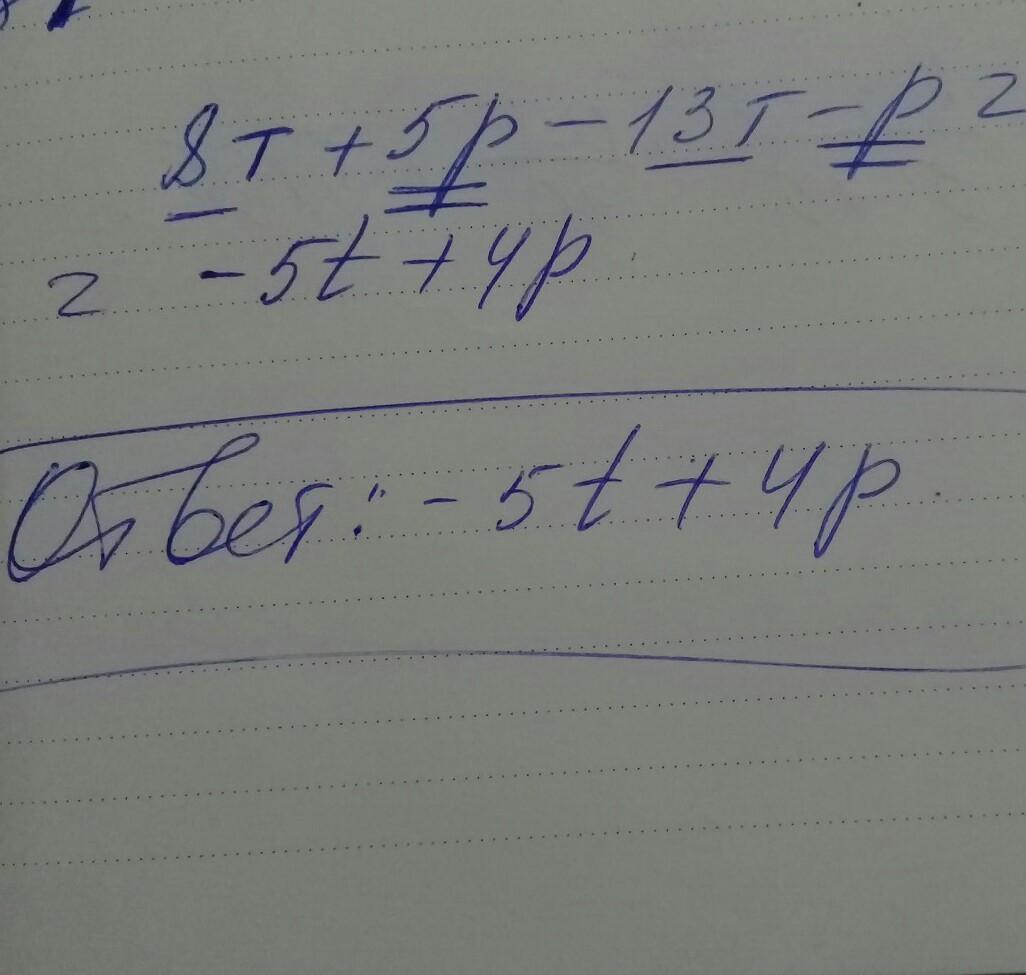 8т + 5p - 13т - p =
= - 5t + 4p
Ответ: - 5t + 4p.